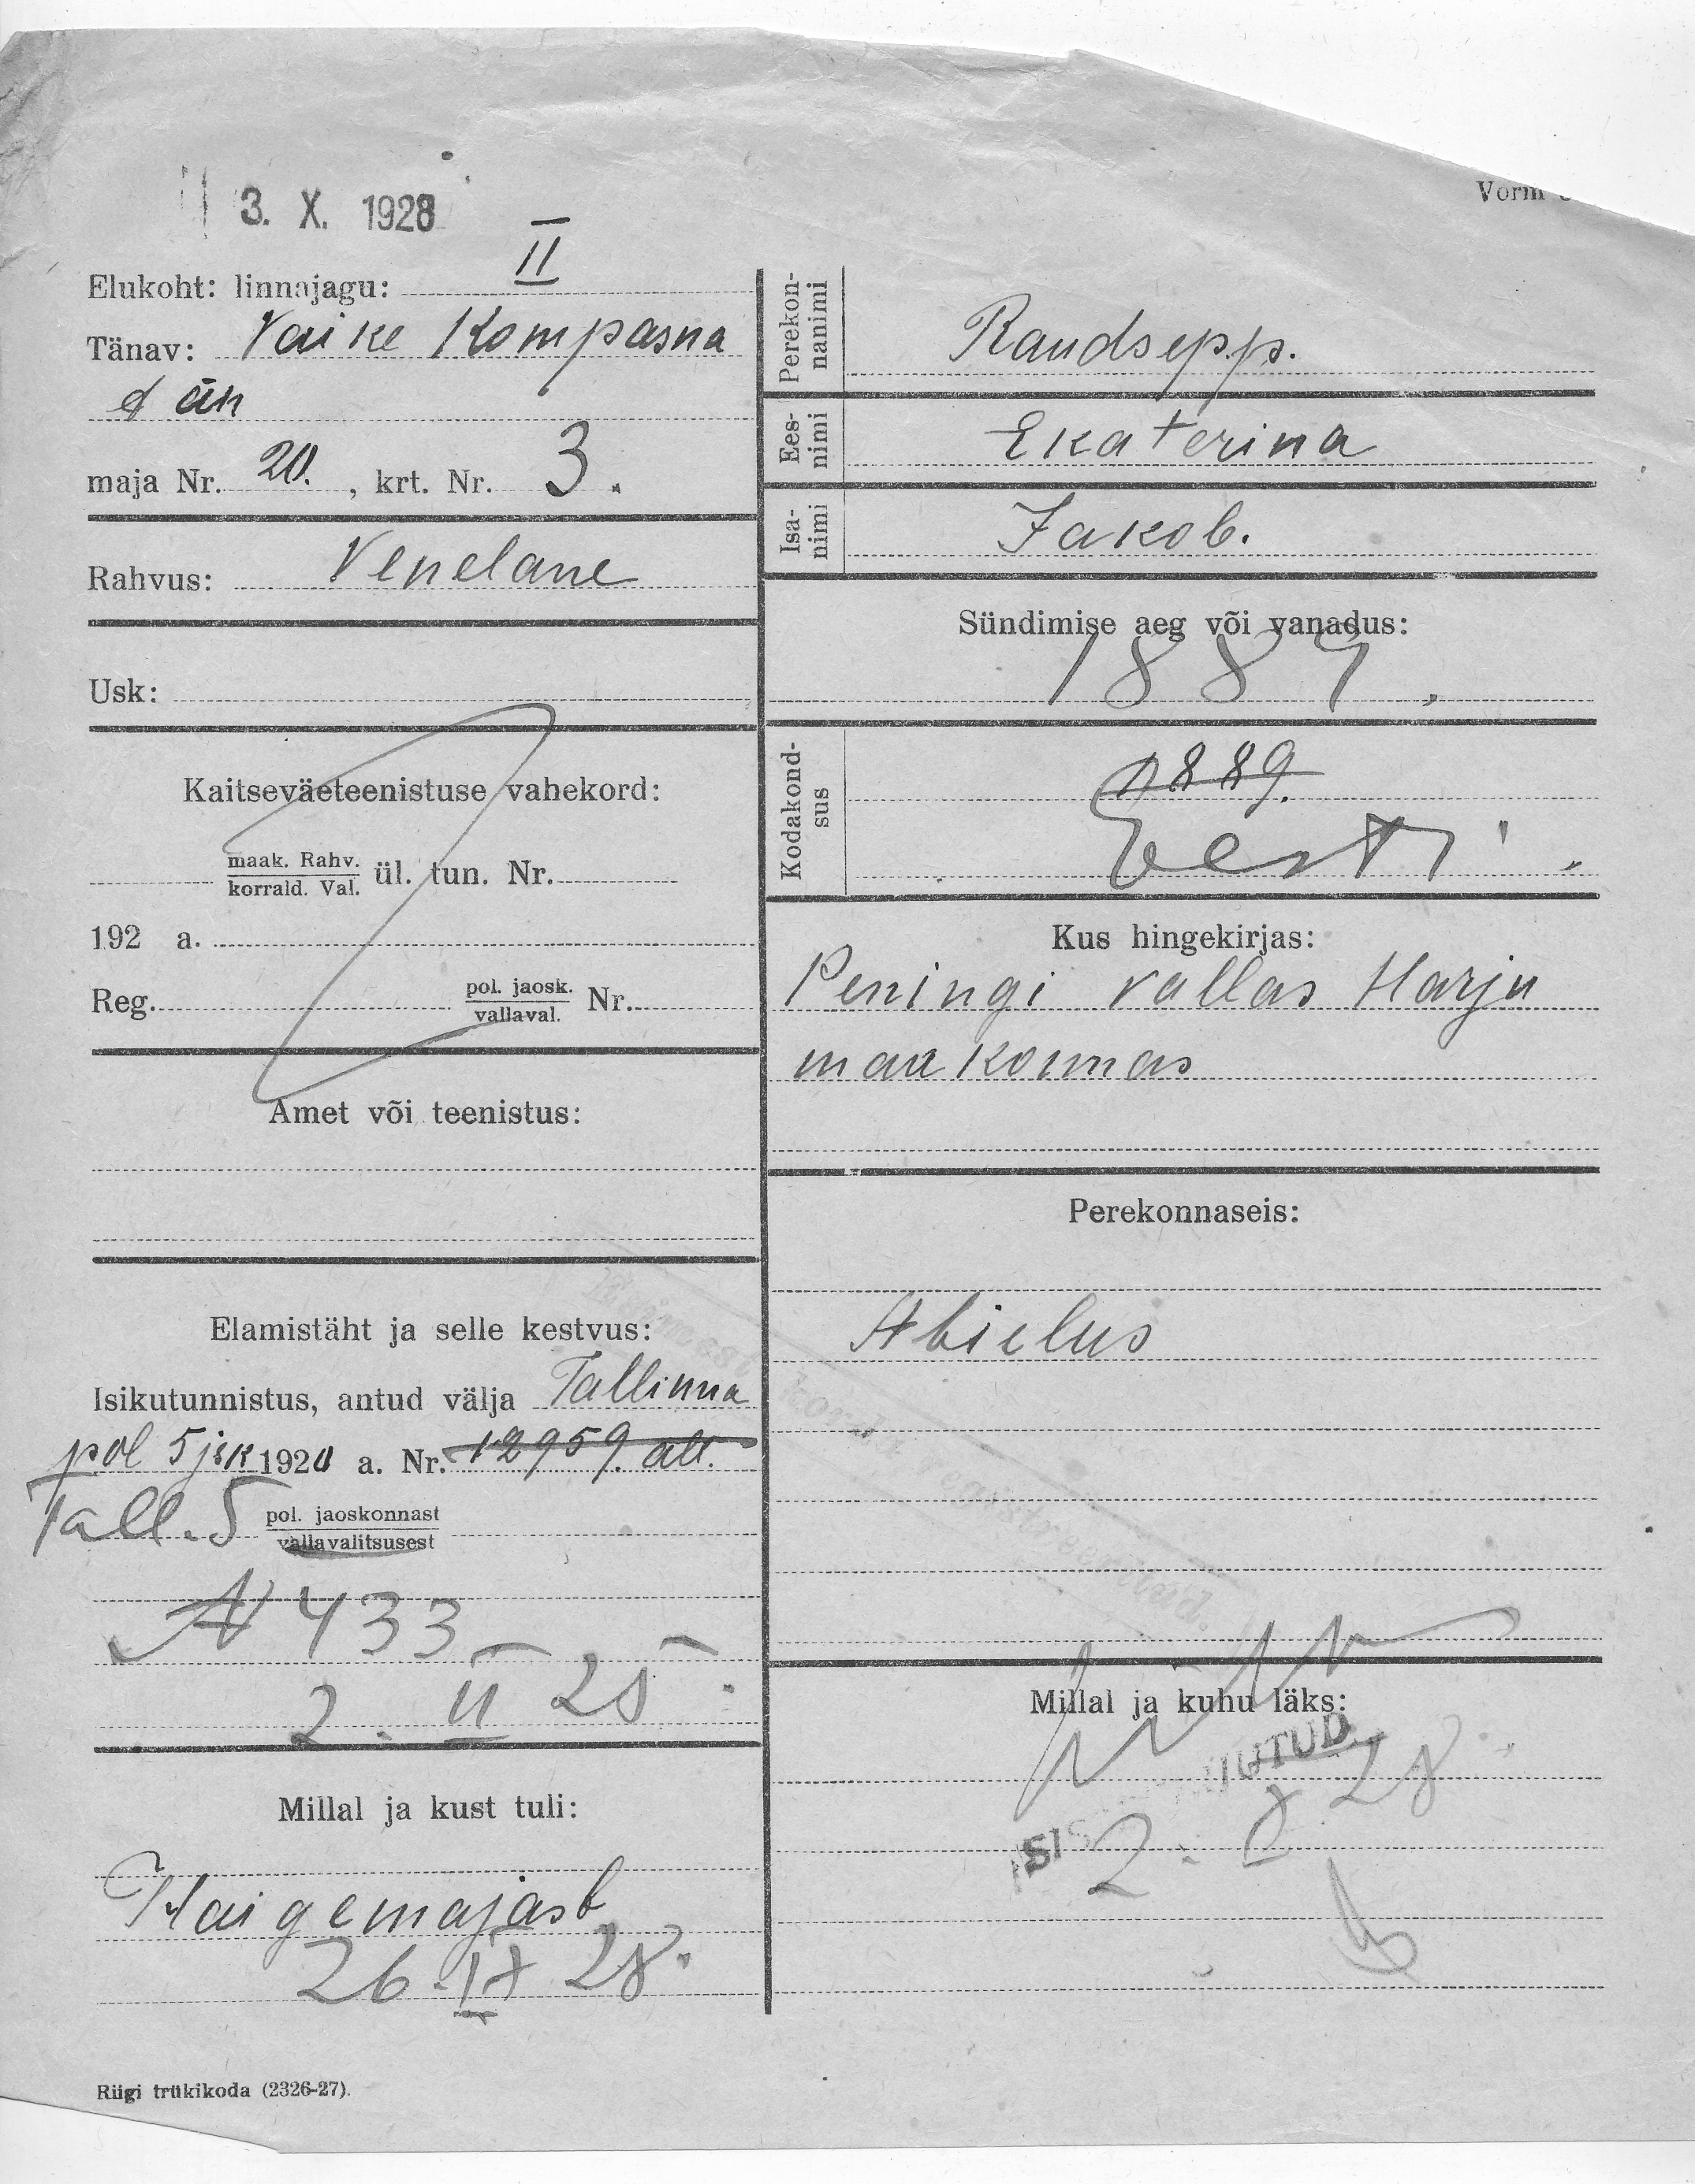 3. X. 1928
Vorm
Elukoht: linnajagu: II
Tänav: Vaike Kompasna
tän
maja Nr. 20. , krt. Nr. 3.
Rahvus: Venelane
Usk:
Kaitseväeteenistuse vahekord:
maak. Rahv.
korrald. Val. ül. tun. Nr.
192 a.
Reg. pol. jaosk.
vallaval. Nr.
Amet või teenistus:
Elamistäht ja selle kestvus:
Isikutunnistus, antud välja Tallinna
pol 5 jsk 1920 a. Nr. 12959. all.
Tall. 5 pol. jaoskonnast
vallavalitsusest
N 433
2. II 25.
Millal ja kust tuli:
Haigemajast
26. IX 28.
Riigi trükikoda (2326-27).
Perekon-
nanimi
Raudsepp.
Ees-
nimi
Ekaterina
Isa-
nimi
Jakob.
Sündimise aeg või vanadus:
1887.
Kodakond-
sus
1889.
Eesti.
Kus hingekirjas:
Peningi vallas Harju
maakonnas
Perekonnaseis:
Abielus
Millal ja kuhu läks:
2. X 28.